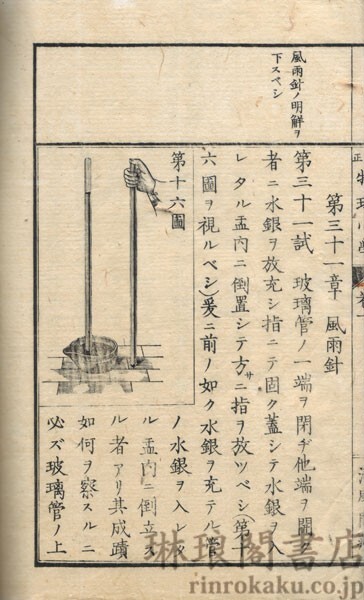 風雨針ノ明解ヲ
下スベシ
第三十一章 風雨針
第三十一試 玻璃管ノ一端ヲ閉ヂ他端ヲ開ク
者ニ水銀ヲ放充シ指ニテ固ク蓋シテ水銀ヲ入
レタル盂内ニ倒置シテ方サニ指ヲ放ツベシ(第十
六圖ヲ視ルベシ)爰ニ前ノ如ク水銀ヲ充テル管
第十六圖
ノ水銀ヲ入レタ
ル盂内ニ倒立ス
ル者アリ其成蹟
如何ヲ察スルニ
必ズ玻璃管ノ上
琳琅閣書店
rinrokaku.co.jp